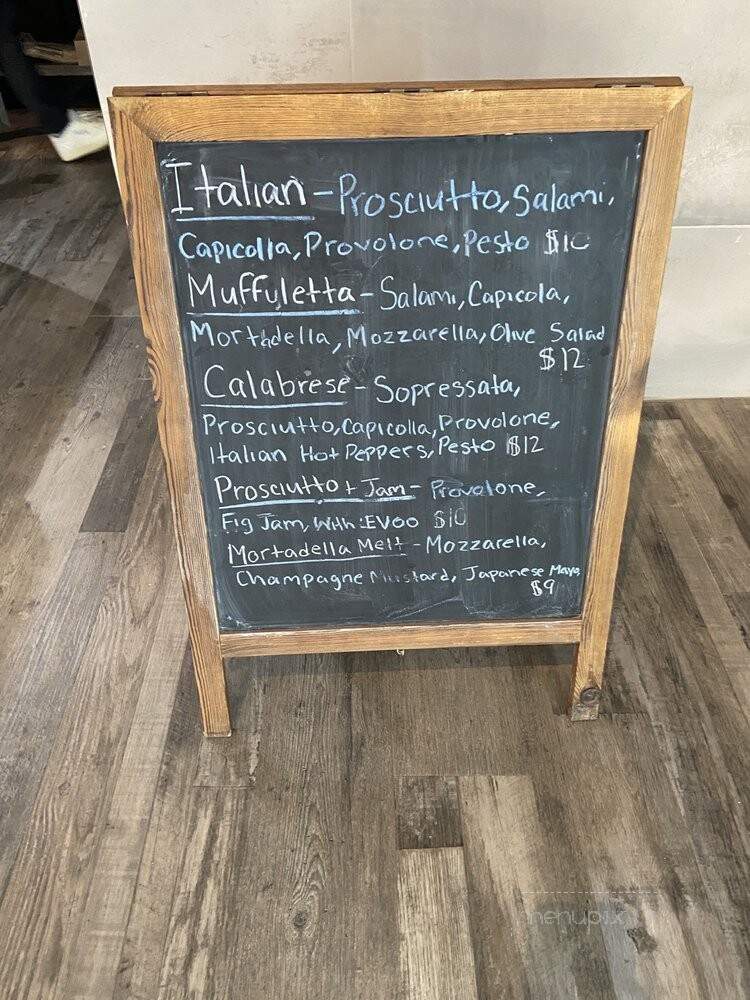 Italian - Prosciutto, Salami,
Capicolla, Provolone, Pesto $10
Muffuletta - Salami, Capicola,
Mortadella, Mozzarella, Olive Salad
$12
Calabrese - Sopressata,
Prosciutto, Capicolla, Provolone,
Italian Hot Peppers, Pesto $12
Prosciutto + Jam - Provolone,
Fig Jam, With EVOO $10
Mortadella Melt - Mozzarella,
Champagne Mustard, Japanese Mayo
$9
menupix